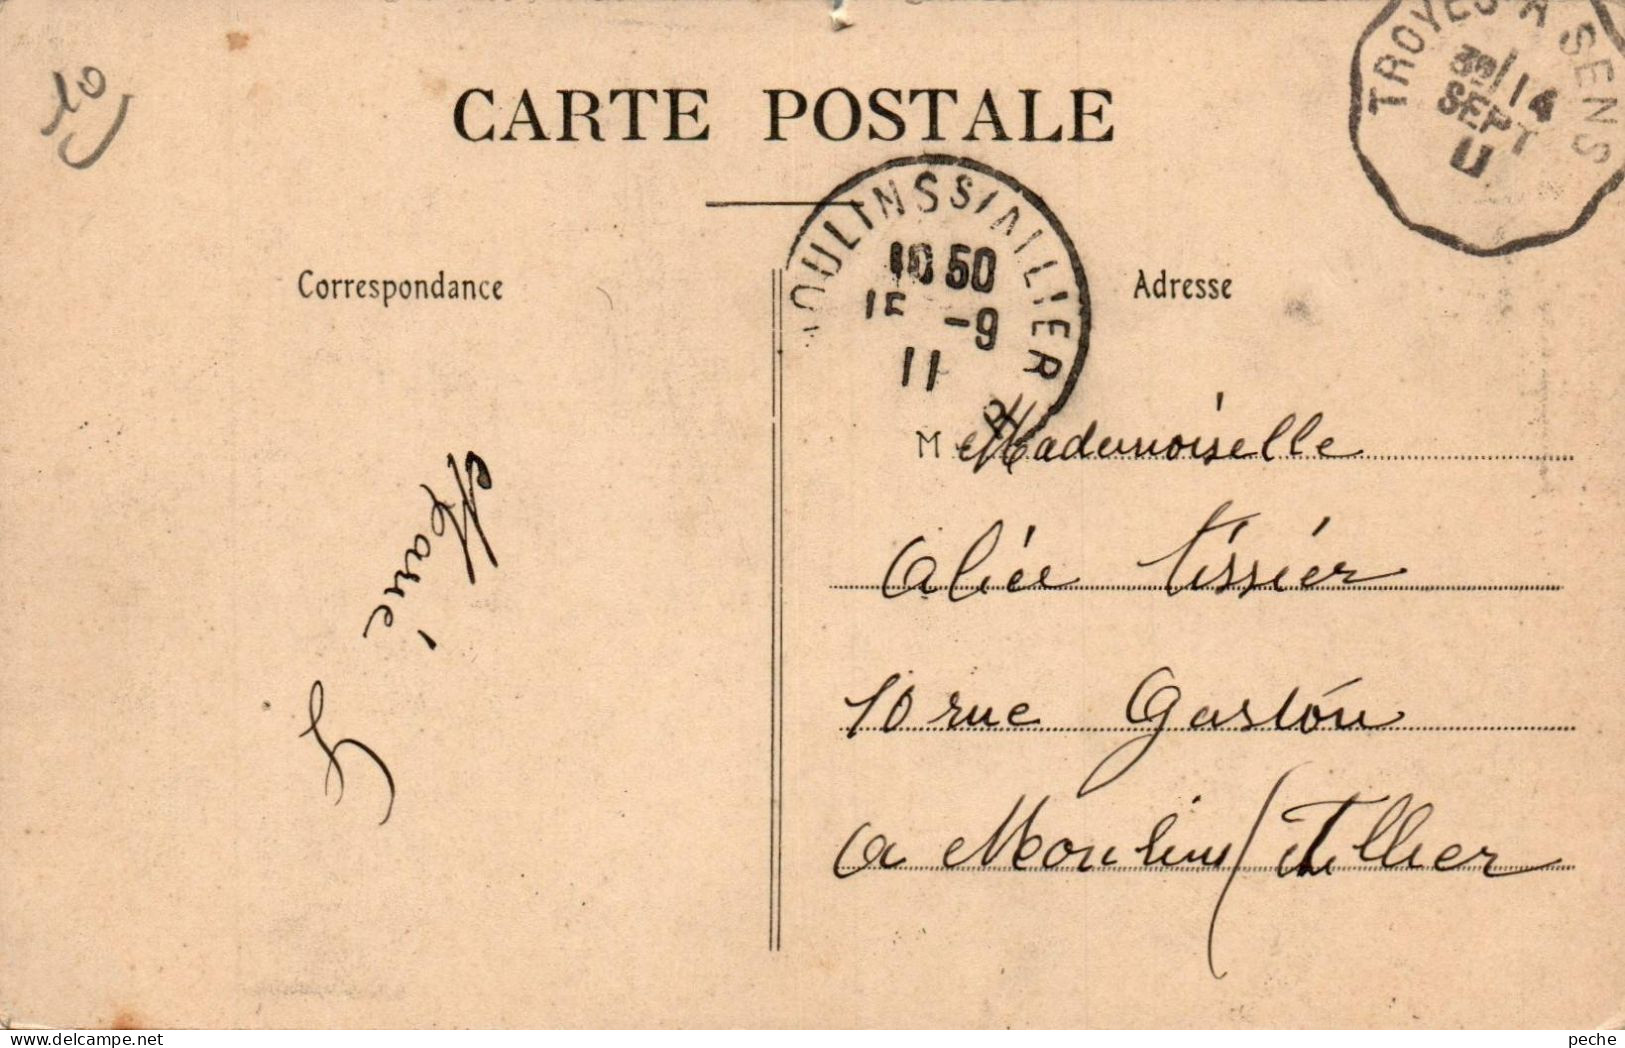 CARTE POSTALE
TROYES A SENS
3º/14
SEPT
11
MOULINS S/ALLIER
10 50
15 -9
11
Correspondance
Adresse
Marie
M Mademoiselle
Alice Tissier
10 rue Gaston
a Moulins/Allier
peche